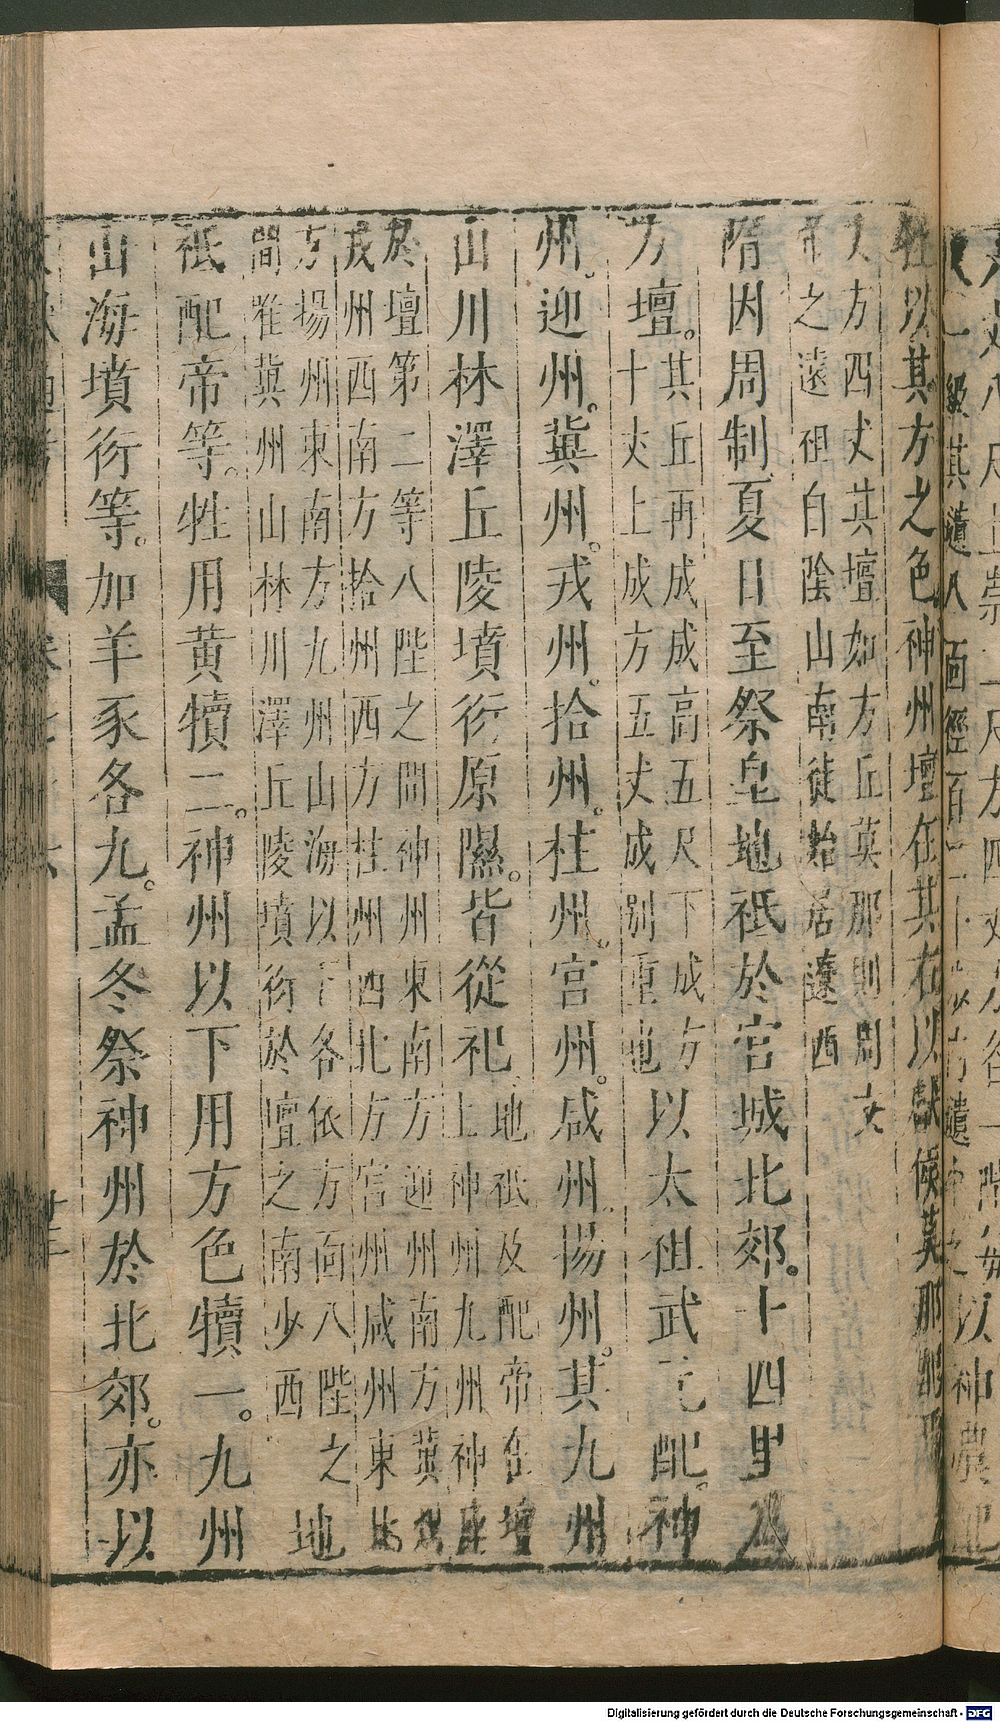 級其壝八面徑百二十步
以神農配
牲以其方之色神州壇在其右以獻侯莫那配焉
丈方四丈其壇如方丘莫那則周文
帝之遠祖自陰山南徙始居遼西
隋因周制夏日至祭皇地祇於宮城北郊。十四里為
方壇。其丘再成成高五尺下成方
十丈上成方五丈成別重也以太祖武元配。神
州。迎州。冀州。戎州。拾州。柱州。宮州。咸州。揚州。其九州
山川林澤丘陵墳衍原隰。皆從祀地祇及配帝在壇
上神州九州神座
於壇第二等八陛之間神州東南方迎州南方冀州
戎州西南方拾州西方柱州西北方宮州咸州東北
方揚州東南方九州山海以下各依方面八陛之
間唯冀州山林川澤丘陵墳衍於壇之南少西地
祇配帝等。牲用黃犢二。神州以下用方色犢一。九州
山海墳衍等。加羊豕各九。孟冬祭神州於北郊。亦以
Digitalisierung gefördert durch die Deutsche Forschungsgemeinschaft - DFG